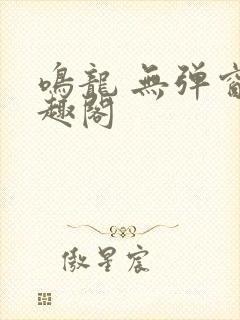 鳴龍 無弹窗
趣閣
傲星宸